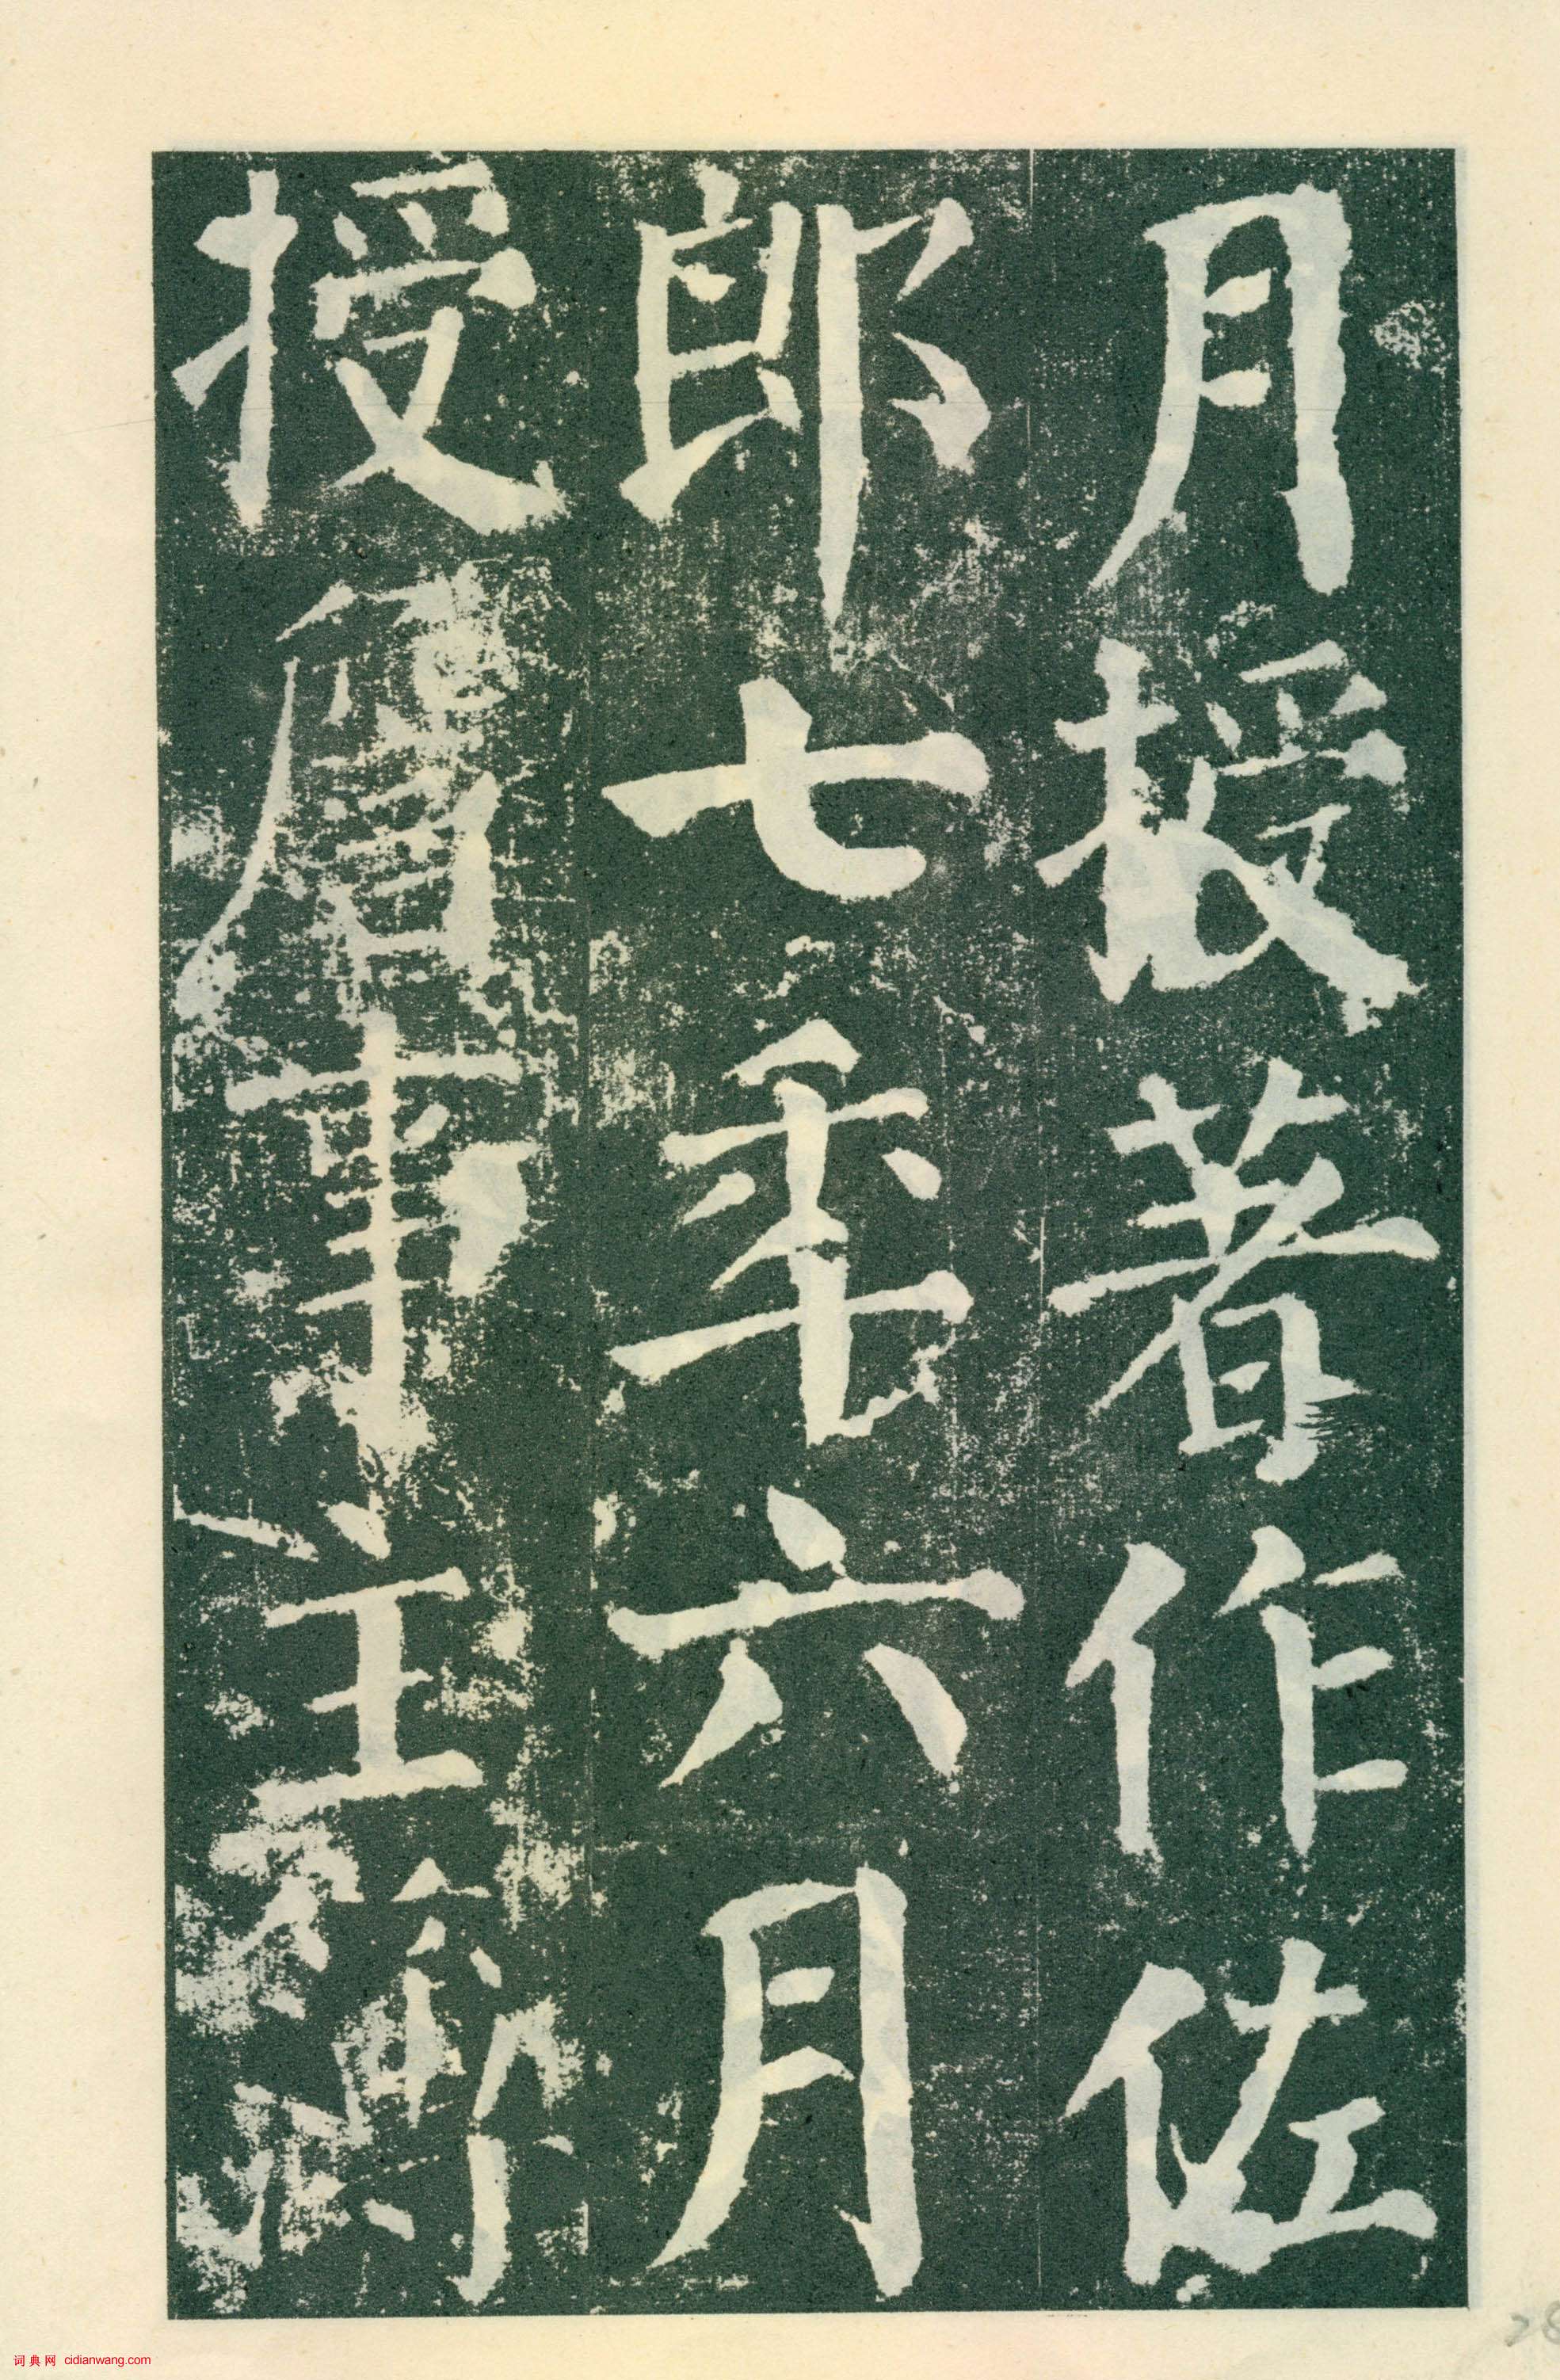 月授著作佐
郎七年六月
授詹事主簿
词典网 cidianwang.com